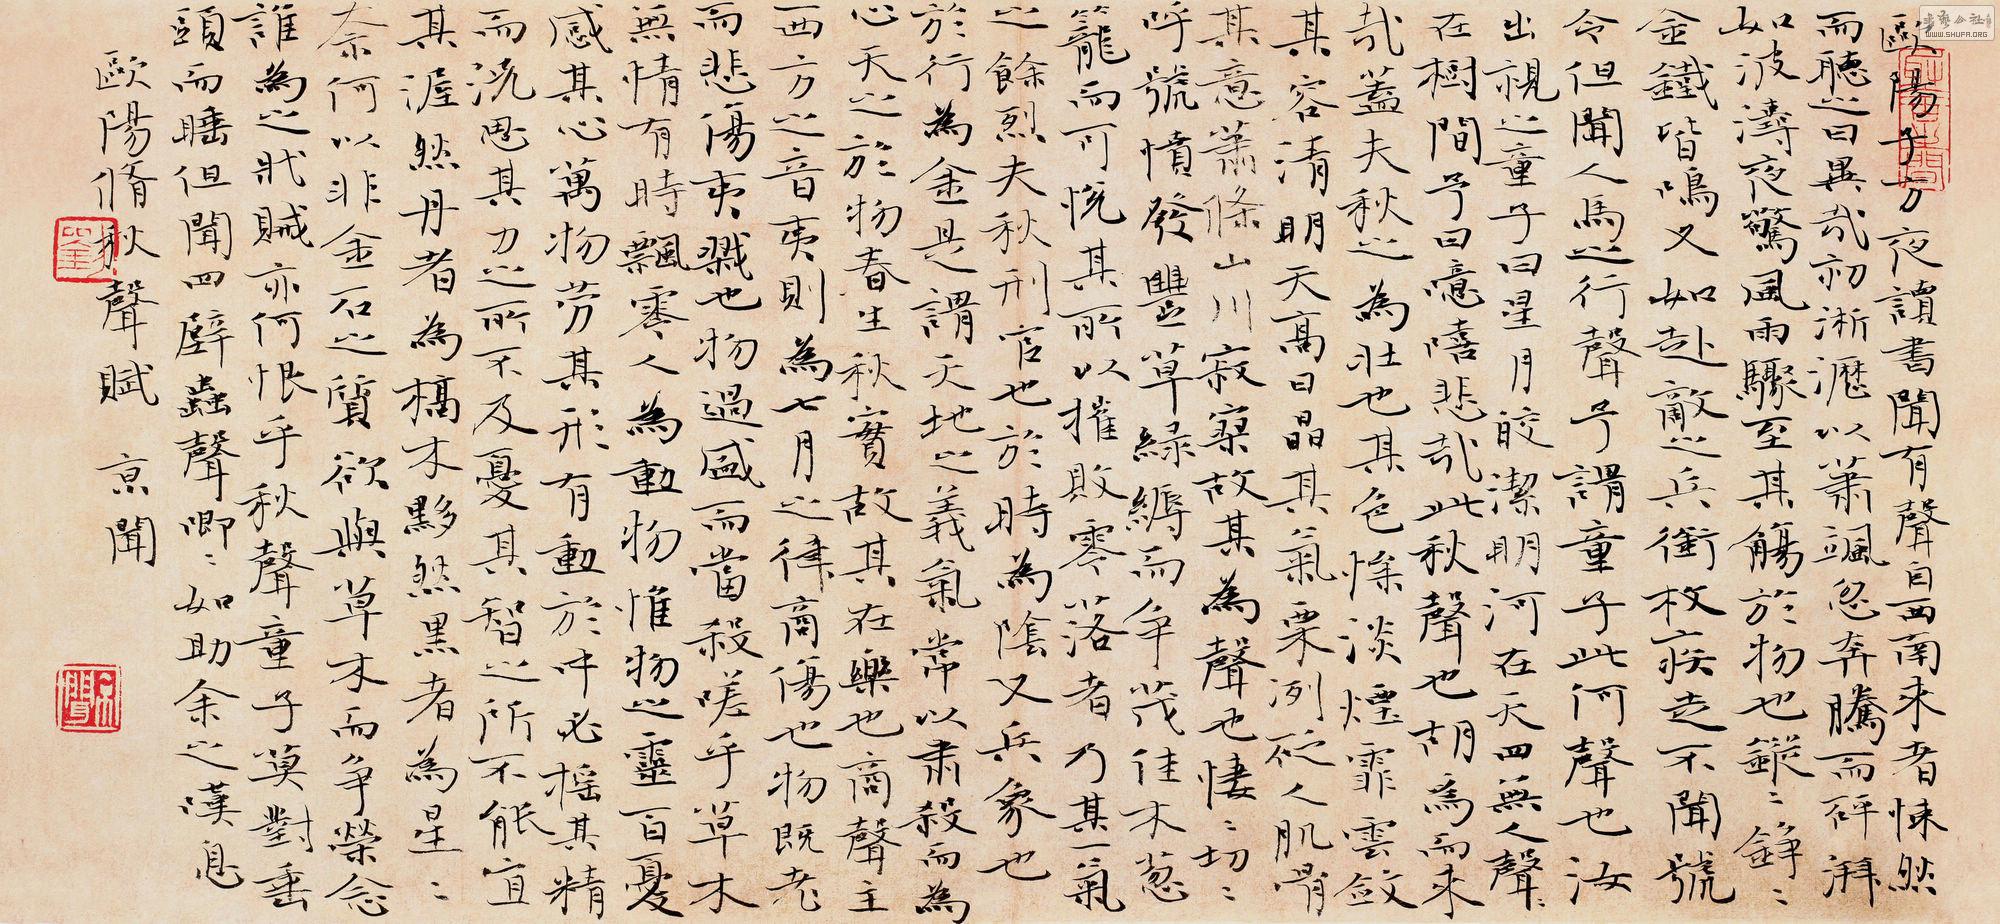 歐陽子方夜讀書聞有聲自西南來者悚然
而聽之曰異哉初淅瀝以蕭颯忽奔騰而砰湃
如波濤夜驚風雨驟至其觸於物也鏦〻錚〻
金鐵皆鳴又如赴敵之兵銜枚疾走不聞號
令但聞人馬之行聲予謂童子此何聲也汝
出視之童子曰星月皎潔明河在天四無人聲〻
在樹間予曰噫嘻悲哉此秋聲也胡為而來
哉蓋夫秋之為壯也其色慘淡煙霏雲斂
其容清明天高日晶其氣栗洌砭人肌骨
其意蕭條山川寂寥故其為聲也悽〻切〻
呼號憤發豐草綠縟而爭茂佳木葱
籠而可悅其所以摧敗零落者乃其一氣
之餘烈夫秋刑官也於時為陰又兵象也
於行為金是謂天地之義氣常以肅殺而為
心天之於物春生秋實故其在樂也商聲主
西方之音夷則為七月之律商傷也物既老
而悲傷夷戮也物過盛而當殺嗟乎草木
無情有時飄零人為動物惟物之靈百憂
感其心萬物勞其形有動於中必搖其精
而況思其力之所不及憂其智之所不能宜
其渥然丹者為槁木黟然黑者為星〻
奈何以非金石之質欲與草木而爭榮念
誰為之戕賊亦何恨乎秋聲童子莫對垂
頭而睡但聞四壁蟲聲唧〻如助余之嘆息
歐陽脩秋聲賦 京聞
京聞
書法公社
WWW.SHUFA.ORG